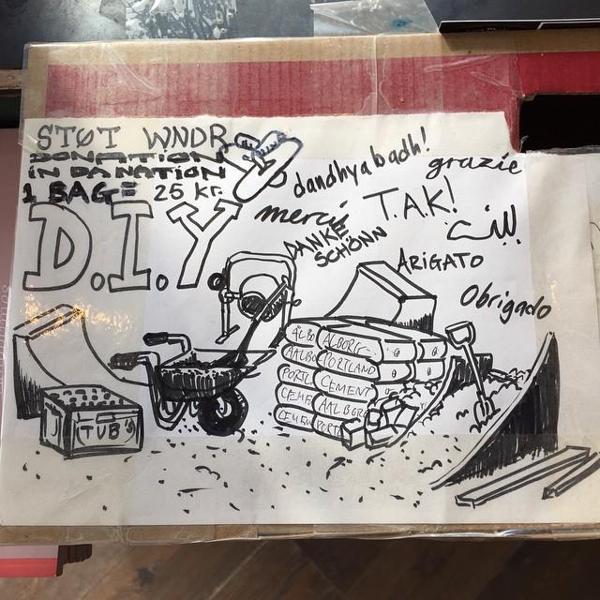 STØT WNDR
DONATION
IN DA NATION
1 BAG = 25 kr.
D.I.Y
dandhyabadh!
grazie
merci
T.A.K!
DANKE
SCHÖNN
ARIGATO
Obrigado
ÅLBO
ALBORG
AALBO
PORTLAND
PORTL
CEMENT
CEME
AALBORG
CEMEN
PORT
TUB'S